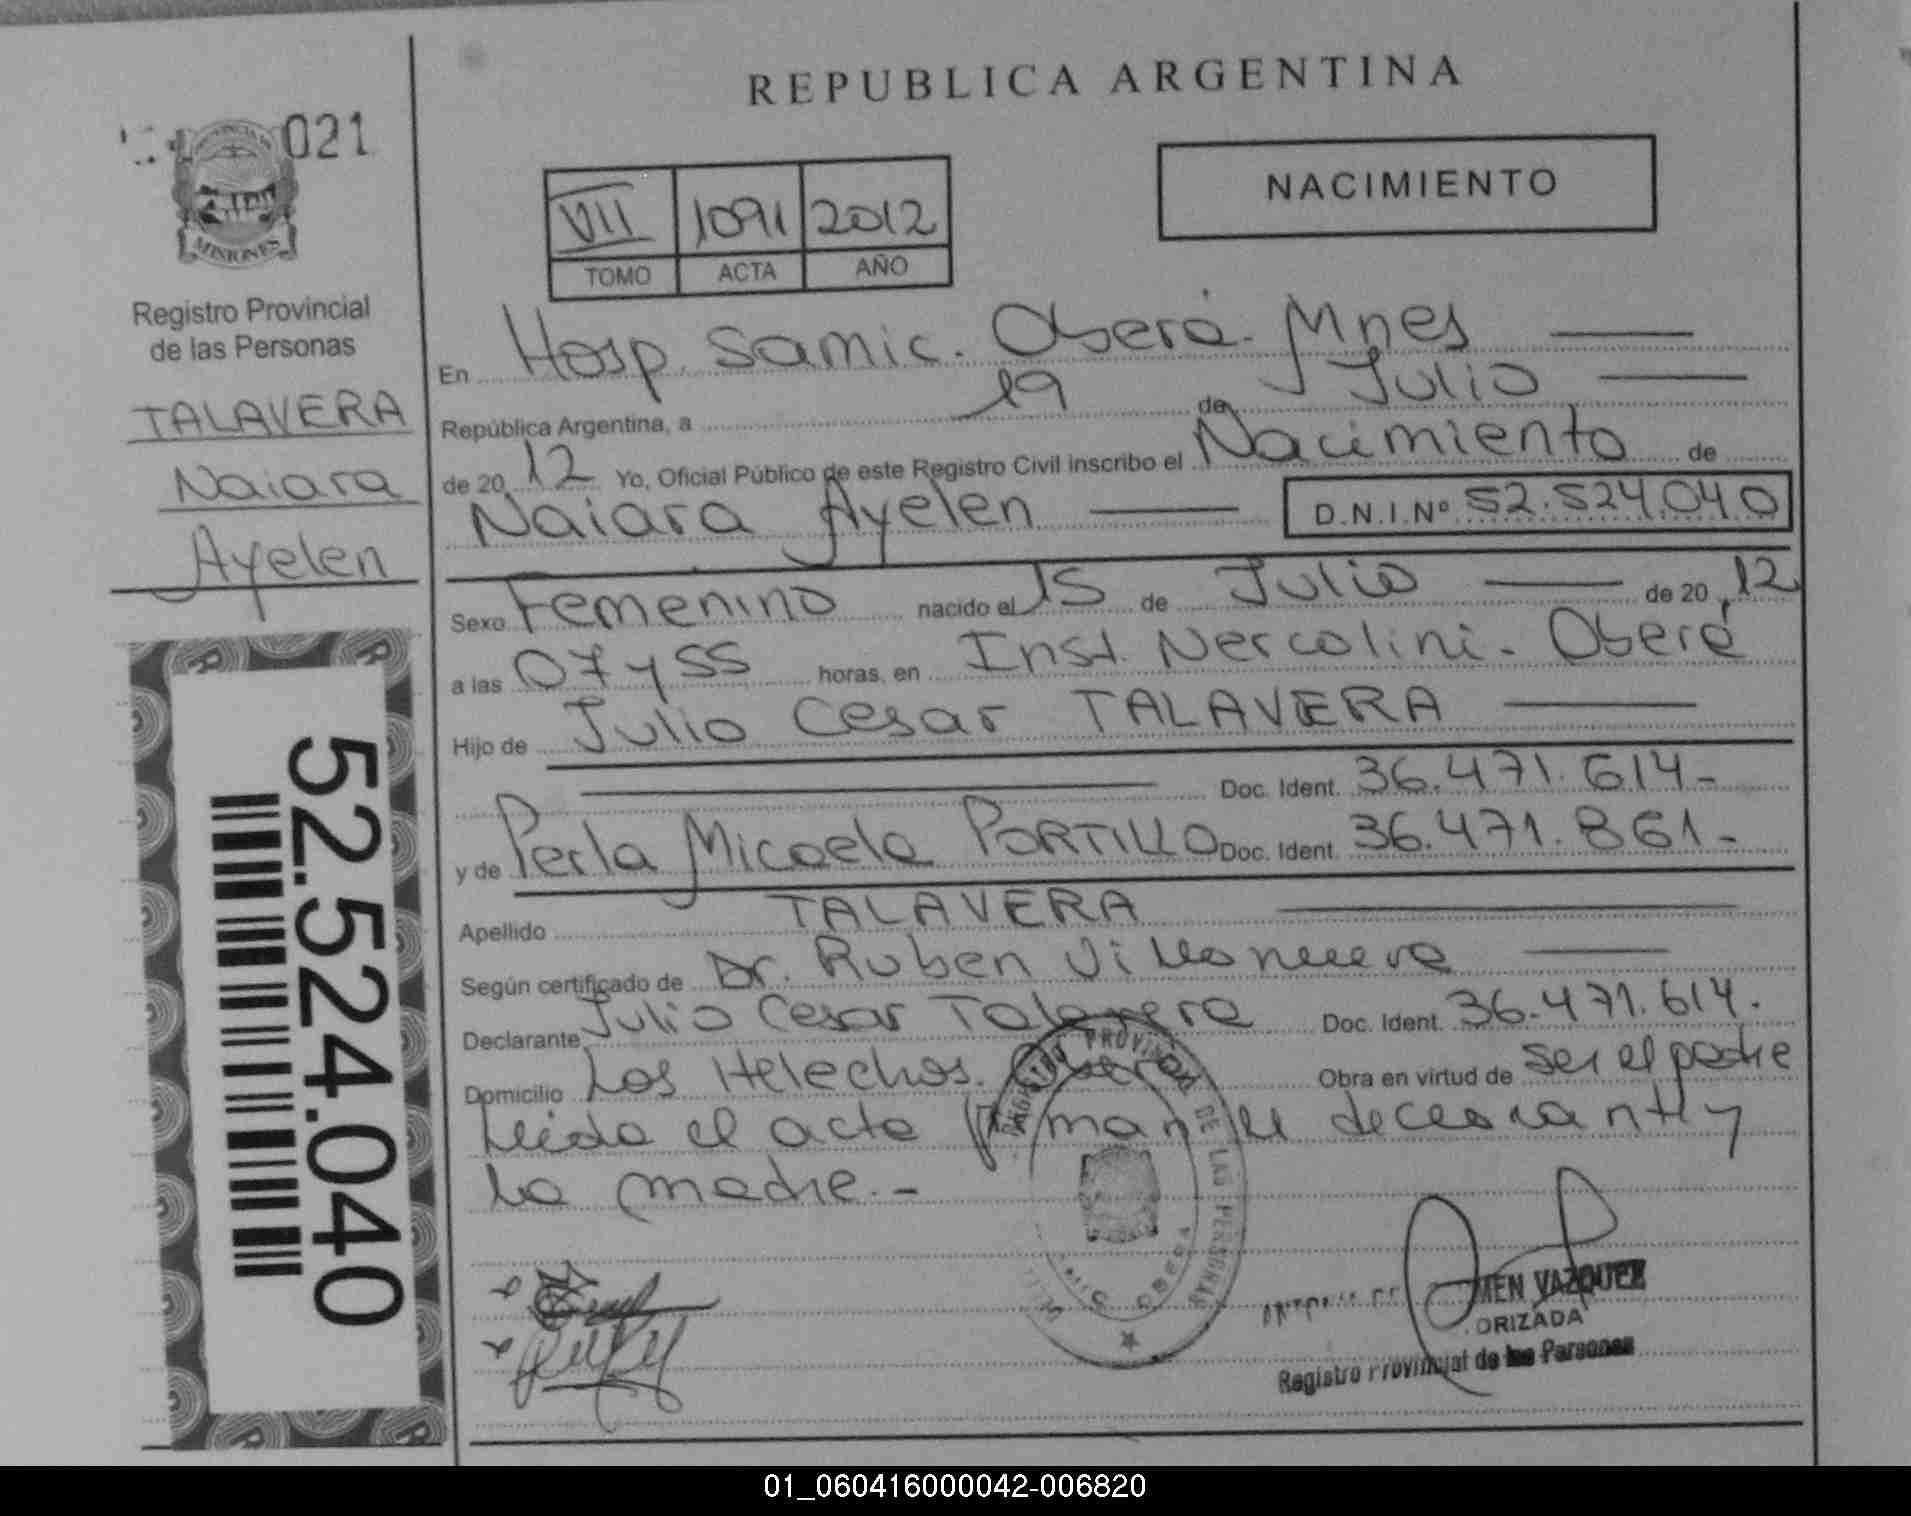 REPUBLICA ARGENTINA
021
MISIONES
Registro Provincial
de las Personas
TALAVERA
Naiara
Ayelen
52.524.040
NACIMIENTO
VII 1091 2012
TOMO ACTA AÑO
En Hosp. Samic. Oberá. Mnes
República Argentina, a 19 de Julio
de 20 12 Yo, Oficial Público de este Registro Civil inscribo el Nacimiento de
Naiara Ayelen D.N.I.Nº 52.524.040
Sexo Femenino nacido el 15 de Julio de 20 12
a las 07 y 55 horas, en Inst. Nercolini. Oberá
Hijo de Julio Cesar TALAVERA
Doc. Ident. 36.471.614-
y de Perla Micaela PORTILLO Doc. Ident. 36.471.861-
Apellido TALAVERA
Según certificado de Dr. Ruben Villanueva
Declarante Julio Cesar Talavera Doc. Ident. 36.471.614.
Domicilio Los Helechos. Oberá Obra en virtud de ser el padre
Leida el acta firman el declarante y
la madre.-
PROVINCIAL DE LAS PERSONAS
MEN VAZQUEZ
ORIZADA
Registro Provincial de las Personas
01_060416000042-006820